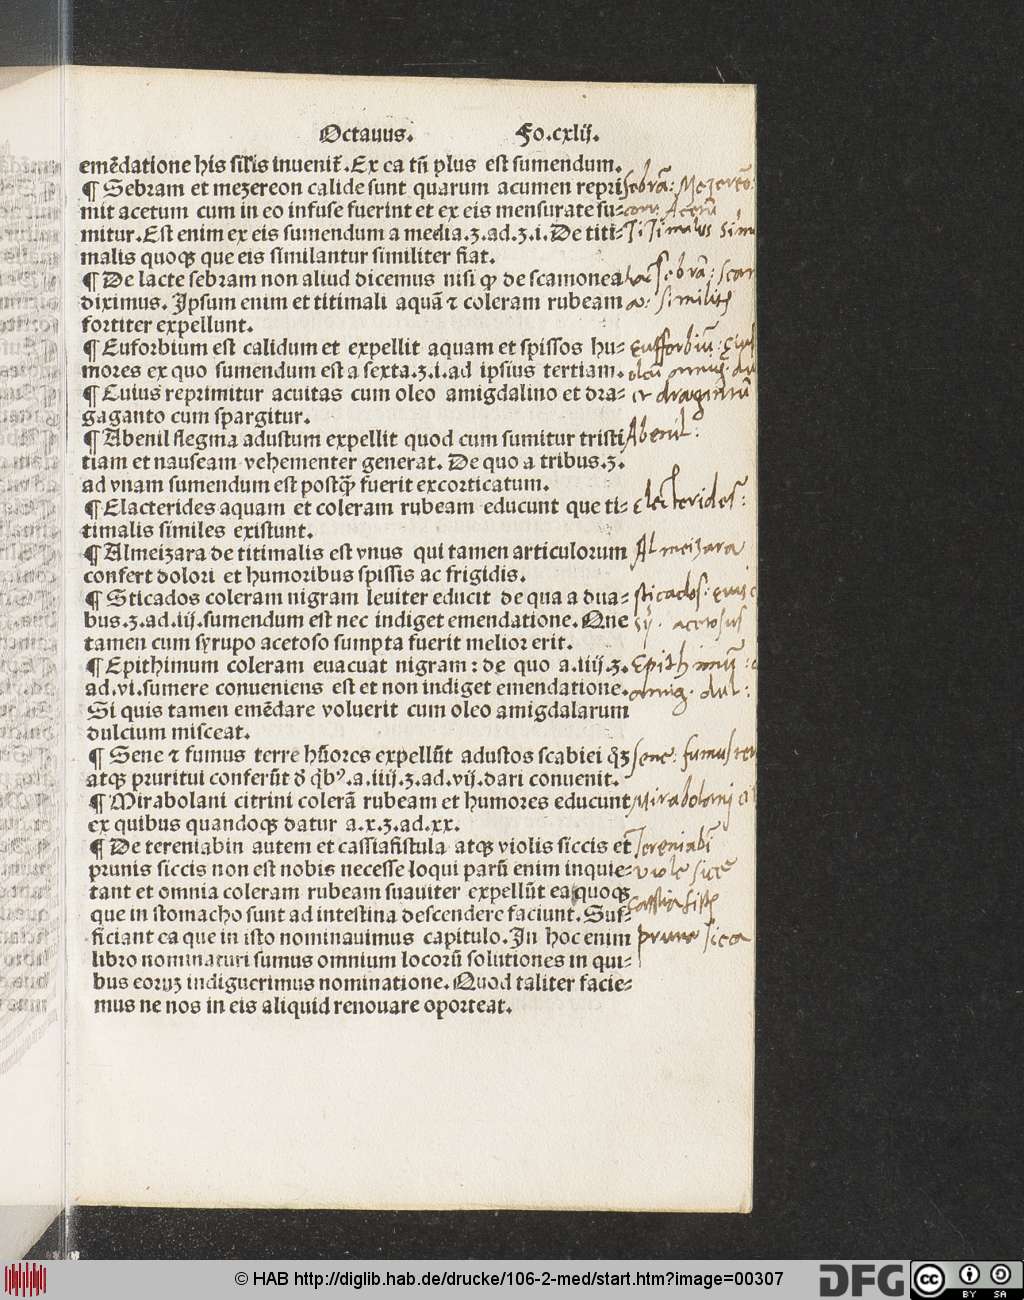 Octauus. Fo.cxlij.
emēdatione his silĩs inuenit᷑. Ex ea tñ plus est sumendum.
¶ Sebram et mezereon calide sunt quarum acumen repri
mit acetum cum in eo infuse fuerint et ex eis mensurate su⸗
mitur. Est enim ex eis sumendum a media.ʒ.ad.ʒ.i. De titi⸗
malis quoqꝫ que eis similantur similiter fiat.
¶ De lacte sebram non aliud dicemus nisi qꝫ de scamonea
diximus. Ipsum enim et titimali aquã ⁊ coleram rubeam
fortiter expellunt.
¶ Euforbium est calidum et expellit aquam et spissos hu⸗
mores ex quo sumendum est a sexta.ʒ.i.ad ipsius tertiam.
¶ Cuius reprimitur acuitas cum oleo amigdalino et dra⸗
gaganto cum spargitur.
¶ Abenil flegma adustum expellit quod cum sumitur tristi
tiam et nauseam vehementer generat. De quo a tribus.ʒ.
ad vnam sumendum est postq̃ fuerit excorticatum.
¶ Elacterides aquam et coleram rubeam educunt que ti⸗
timalis similes existunt.
¶ Almeizara de titimalis est vnus qui tamen articulorum
confert dolori et humoribus spissis ac frigidis.
¶ Sticados coleram nigram leuiter educit de qua a dua⸗
bus.ʒ.ad.iij.sumendum est nec indiget emendatione. Que
tamen cum syrupo acetoso sumpta fuerit melior erit.
¶ Epithimum coleram euacuat nigram: de quo a.iiij.ʒ.
ad.vi.sumere conueniens est et non indiget emendatione.
Si quis tamen emēdare voluerit cum oleo amigdalarum
dulcium misceat.
¶ Sene ⁊ fumus terre hũores expellũt adustos scabiei q̃ʒ
atqꝫ pruritui conferũt ð q̃bꝰ.a.iiij.ʒ.ad.vij.dari conuenit.
¶ Mirabolani citrini colerã rubeam et humores educunt
ex quibus quandoqꝫ datur a.x.ʒ.ad.xx.
¶ De tereniabin autem et cassiafistula atqꝫ violis siccis et
prunis siccis non est nobis necesse loqui parũ enim inquie⸗
tant et omnia coleram rubeam suauiter expellũt ea quoqꝫ
que in stomacho sunt ad intestina descendere faciunt. Suf⸗
ficiant ea que in isto nominauimus capitulo. In hoc enim
libro nominaturi sumus omnium locorũ solutiones in qui⸗
bus eoruꝫ indiguerimus nominatione. Quod taliter facie⸗
mus ne nos in eis aliquid renouare oporteat.
sebrã: Mezereõ:
Titimalus
sebrã: scam
similit
eufforbiũ:
Abenil:
electerides:
Almeizara
sticados:
acetosus
Epithimũ:
amig. dul:
sene: fumus
Mirabolanj
Tereniabĩ
viole sice
cassia fist
prune sicca
© HAB http://diglib.hab.de/drucke/106-2-med/start.htm?image=00307
DFG
cc
BY SA